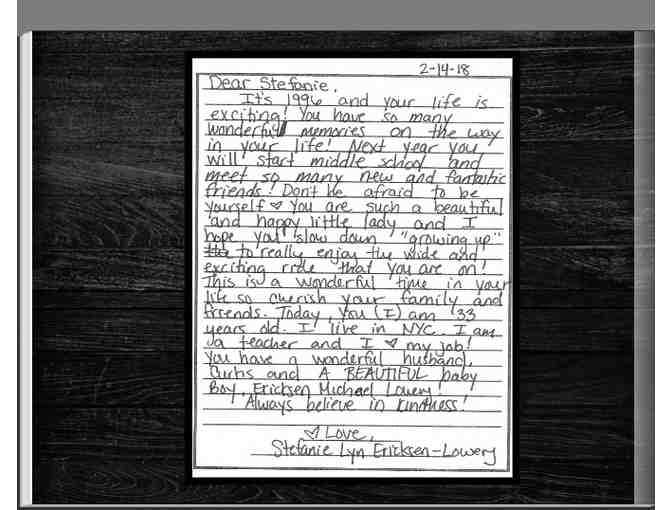 2-14-18
Dear Stefanie,
It's 1996 and your life is
exciting! You have so many
wonderful memories on the way
in your life! Next year you
will start middle school and
meet so many new and fantastic
friends! Don't be afraid to be
yourself ♡ You are such a beautiful
and happy little lady and I
hope you slow down "growing up"
to really enjoy the wide and
exciting ride that you are on!
This is a wonderful time in your
life so cherish your family and
friends. Today, you (I) am 33
years old. I live in NYC. I am
a teacher and I ♡ my job!
You have a wonderful husband,
and A BEAUTIFUL baby
Boy, Ericksen Michael Lowery!
Always believe in kindness!
♡ Love,
Stefanie Lyn Ericksen-Lowery